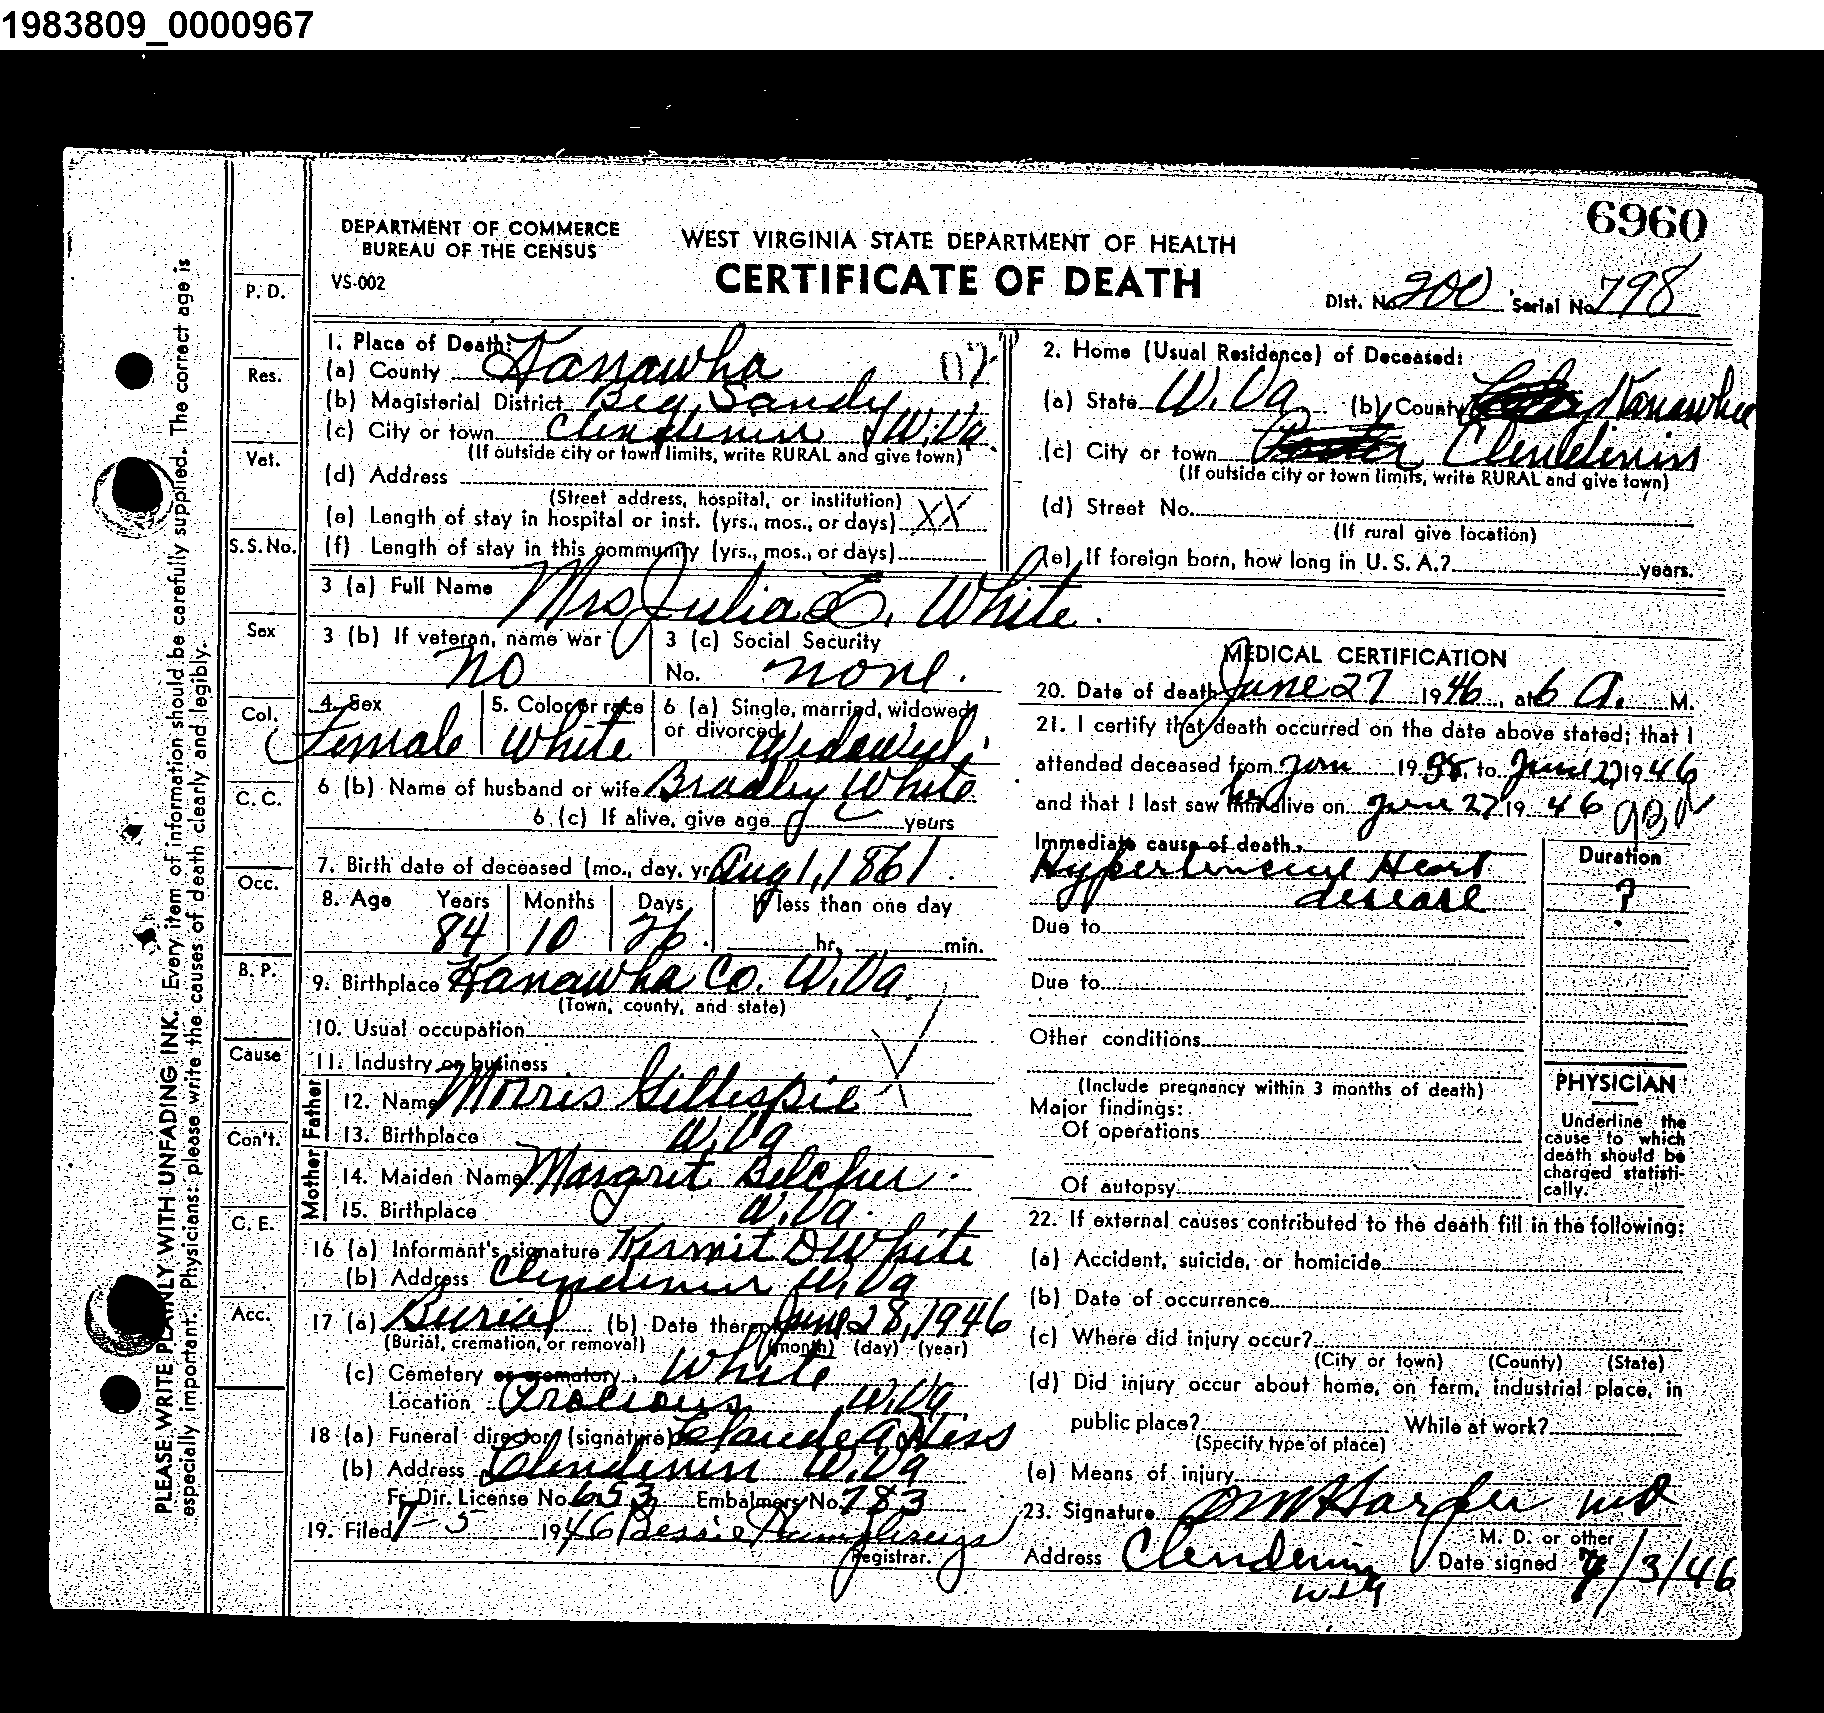 1983809_0000967
6960
DEPARTMENT OF COMMERCE
BUREAU OF THE CENSUS
VS-002
WEST VIRGINIA STATE DEPARTMENT OF HEALTH
CERTIFICATE OF DEATH
Dist. No. 200 Serial No. 798
PLEASE WRITE PLAINLY WITH UNFADING INK. Every item of information should be carefully supplied. The correct age is
especially important. Physicians: please write the causes of death clearly and legibly.
P. D.
Res.
Vet.
S. S. No.
Sex
Col.
C. C.
Occ.
B. P.
Cause
Con't.
C. E.
Acc.
1. Place of Death:
(a) County Kanawha
(b) Magisterial District Big Sandy
(c) City or town Clendenin W. Va
(If outside city or town limits, write RURAL and give town)
(d) Address
(Street address, hospital, or institution)
(e) Length of stay in hospital or inst. (yrs., mos., or days) XX
(f) Length of stay in this community (yrs., mos., or days)
2. Home (Usual Residence) of Deceased:
(a) State W. Va (b) County Kanawha
(c) City or town Clendenin
(If outside city or town limits, write RURAL and give town)
(d) Street No.
(If rural give location)
(e) If foreign born, how long in U. S. A.? years.
3 (a) Full Name Mrs Julia E. White.
3 (b) If veteran, name war no
3 (c) Social Security
No. none.
4. Sex Female
5. Color or race White
6 (a) Single, married, widowed
or divorced Widowed
6 (b) Name of husband or wife Bradley White
6 (c) If alive, give age years
7. Birth date of deceased (mo., day, yr.) Aug 1, 1861.
8. Age Years Months Days If less than one day
84 10 26. hr. min.
9. Birthplace Kanawha Co. W. Va.
(Town, county, and state)
10. Usual occupation
11. Industry or business
Father
12. Name Morris Gillespie
13. Birthplace W. Va
Mother
14. Maiden Name Margrit Belcher.
15. Birthplace W. Va.
16 (a) Informant's signature Kermit D White
(b) Address Clendenin W. Va
17 (a) Burial (b) Date thereof June 28, 1946
(Burial, cremation, or removal) (month) (day) (year)
(c) Cemetery or crematory White
Location Procious W. Va
18 (a) Funeral director (signature) Claude A Hess
(b) Address Clendenin W. Va
F. Dir. License No. 653 Embalmers No. 783
19. Filed 7-5 1946 Bessie Humphreys
Registrar.
MEDICAL CERTIFICATION
20. Date of death June 27 1946, at 6 A. M.
21. I certify that death occurred on the date above stated; that I
attended deceased from Jan 19 to June 27 1946
and that I last saw her alive on June 27 19 46
Immediate cause of death
Duration
Hypertensive Heart
disease ?
Due to
Due to
Other conditions
(Include pregnancy within 3 months of death)
Major findings:
Of operations
Of autopsy
PHYSICIAN
Underline the
cause to which
death should be
charged statisti-
cally.
22. If external causes contributed to the death fill in the following:
(a) Accident, suicide, or homicide
(b) Date of occurrence
(c) Where did injury occur?
(City or town) (County) (State)
(d) Did injury occur about home, on farm, industrial place, in
public place? While at work?
(Specify type of place)
(e) Means of injury
23. Signature M Harper MD
M. D. or other
Address Clendenin Date signed 7/3/46
W Va